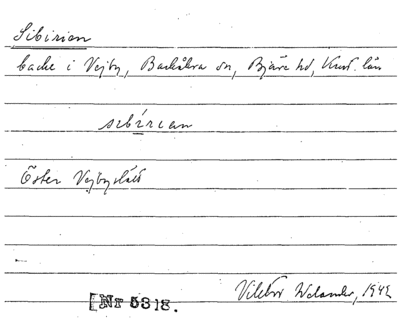 Sibirien
backe i Vejby, Barkåkra sn, Bjäre hd, Krist. län
sıbírıan
Öster Vejbyslätt
[Nr 5318.
Welander, 1942